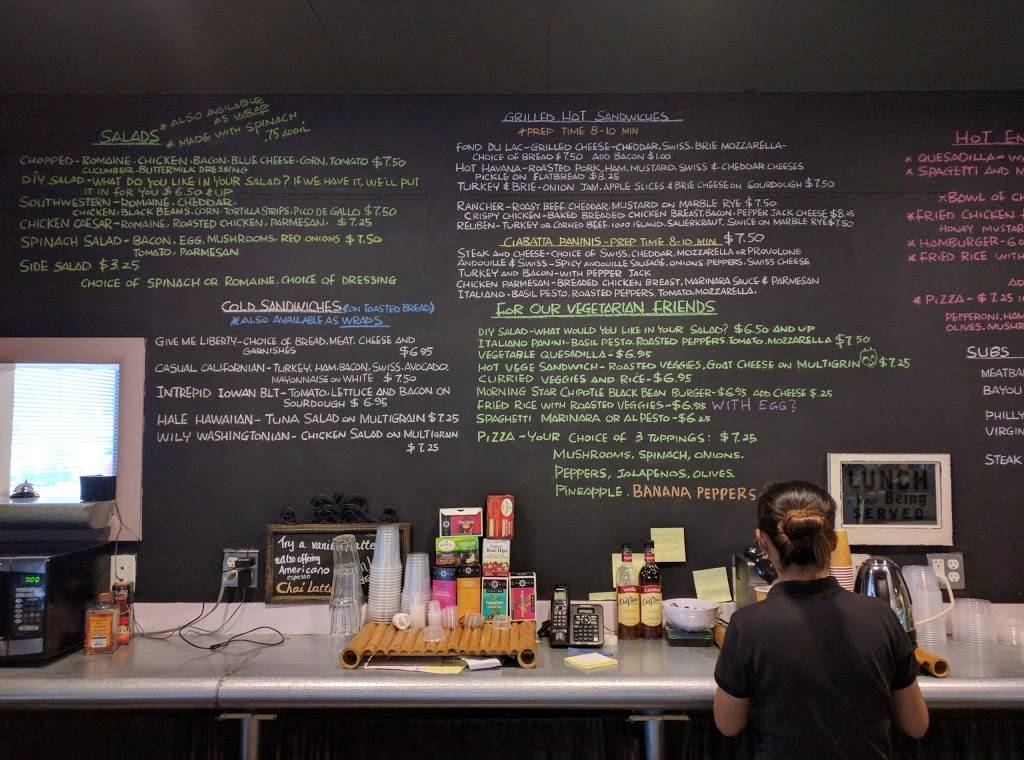 SALADS
* ALSO AVAILABLE
AS WRAP
* MADE WITH SPINACH
.75 ADD'L
CHOPPED-ROMAINE, CHICKEN, BACON, BLUE CHEESE, CORN, TOMATO $7.50
CUCUMBER, BUTTERMILK DRESSING
DIY SALAD-WHAT DO YOU LIKE IN YOUR SALAD? IF WE HAVE IT, WE'LL PUT
IT IN FOR YOU $6.50 & UP
SOUTHWESTERN-ROMAINE, CHEDDAR,
CHICKEN, BLACK BEANS, CORN, TORTILLA STRIPS, PICO DE GALLO $7.50
CHICKEN CAESAR-ROMAINE, ROASTED CHICKEN, PARMESAN, $7.25
SPINACH SALAD-BACON, EGG, MUSHROOMS, RED ONIONS $7.50
TOMATO, PARMESAN
SIDE SALAD $3.25
CHOICE OF SPINACH OR ROMAINE, CHOICE OF DRESSING
COLD SANDWICHES (ON TOASTED BREAD)
*ALSO AVAILABLE AS WRAPS
GIVE ME LIBERTY-CHOICE OF BREAD, MEAT, CHEESE AND
GARNISHES $6.95
CASUAL CALIFORNIAN-TURKEY, HAM, BACON, SWISS, AVOCADO,
MAYONNAISE ON WHITE $7.50
INTREPID IOWAN BLT-TOMATO, LETTUCE AND BACON ON
SOURDOUGH $6.95
HALE HAWAIIAN-TUNA SALAD ON MULTIGRAIN $7.25
WILY WASHINGTONIAN-CHICKEN SALAD ON MULTIGRAIN
$7.25
GRILLED HOT SANDWICHES
*PREP TIME 8-10 MIN
FOND DU LAC-GRILLED CHEESE-CHEDDAR, SWISS, BRIE MOZZARELLA-
CHOICE OF BREAD $7.50 ADD BACON $1.00
HOT HAVANA-ROASTED PORK, HAM, MUSTARD, SWISS & CHEDDAR CHEESES
PICKLE ON FLATBREAD $8.25
TURKEY & BRIE-ONION JAM, APPLE SLICES & BRIE CHEESE ON SOURDOUGH $7.50
RANCHER-ROAST BEEF, CHEDDAR, MUSTARD ON MARBLE RYE $7.50
CRISPY CHICKEN-BAKED BREADED CHICKEN BREAST, BACON, PEPPER JACK CHEESE $8.25
REUBEN-TURKEY OR CORNED BEEF, 1000 ISLAND, SAUERKRAUT, SWISS ON MARBLE RYE $7.50
CIABATTA PANINIS-PREP TIME 8-10 MIN $7.50
STEAK AND CHEESE-CHOICE OF SWISS, CHEDDAR, MOZZARELLA OR PROVOLONE
ANDOUILLE & SWISS-SPICY ANDOUILLE SAUSAGE, ONIONS PEPPERS, SWISS CHEESE
TURKEY AND BACON-WITH PEPPER JACK
CHICKEN PARMESAN-BREADED CHICKEN BREAST, MARINARA SAUCE & PARMESAN
ITALIANO-BASIL PESTO, ROASTED PEPPERS, TOMATO, MOZZARELLA.
FOR OUR VEGETARIAN FRIENDS
DIY SALAD-WHAT WOULD YOU LIKE IN YOUR SALAD? $6.50 AND UP
ITALIANO PANINI-BASIL PESTO, ROASTED PEPPERS, TOMATO, MOZZARELLA $7.50
VEGETABLE QUESADILLA-$6.95
HOT VEGE SANDWICH-ROASTED VEGGIES, GOAT CHEESE ON MULTIGRIN $7.25
CURRIED VEGGIES AND RICE-$6.95
MORNING STAR CHIPOTLE BLACK BEAN BURGER-$6.95 ADD CHEESE $.25
FRIED RICE WITH ROASTED VEGGIES-$6.95 WITH EGG?
SPAGHETTI MARINARA OR AL PESTO-$6.25
PIZZA-YOUR CHOICE OF 3 TOPPINGS: $7.25
MUSHROOMS, SPINACH, ONIONS,
PEPPERS, JALAPENOS, OLIVES,
PINEAPPLE, BANANA PEPPERS
HOT EN
* QUESADILLA-W
* SPAGETTI AND M
*BOWL OF CH
*FRIED CHICKEN
HONEY MUSTAR
*HAMBURGER-GO
*FRIED RICE WITH
AD
*PIZZA-$7.25 IN
PEPPERONI, HAM
OLIVES, MUSHR
SUBS
MEATBA
BAYOU
PHILLY
VIRGIN
STEAK
LUNCH
Being
SERVED
Try a vanilla latte
also offering
Americano
espresso
Chai Latte
Vanilla